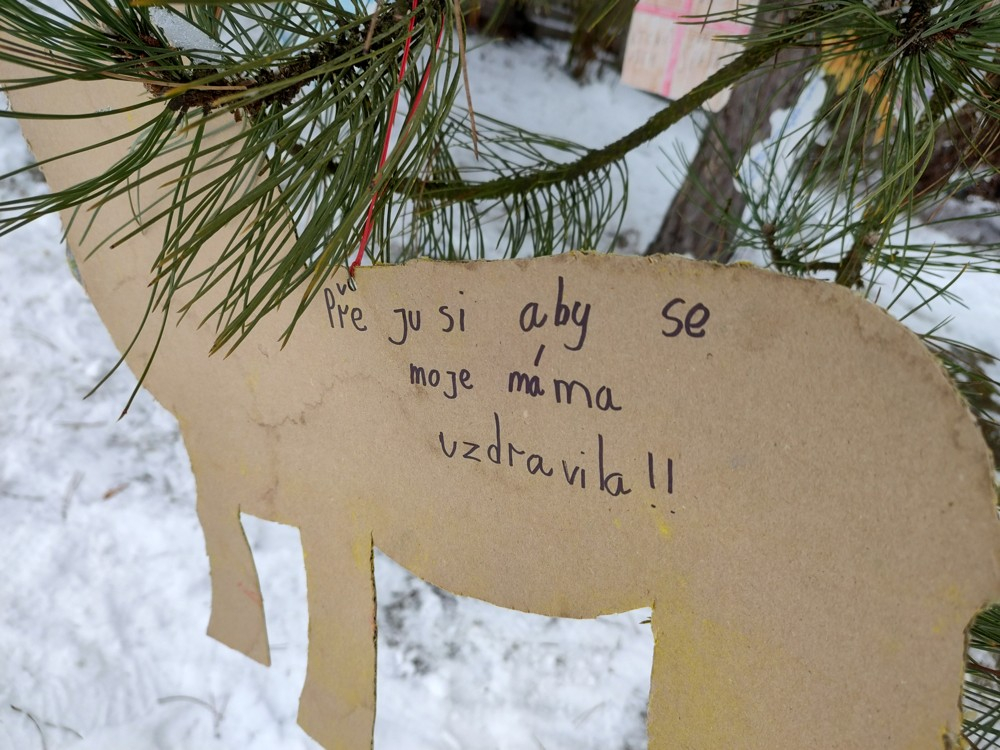 Pře ju si aby se
moje máma
uzdravila!!